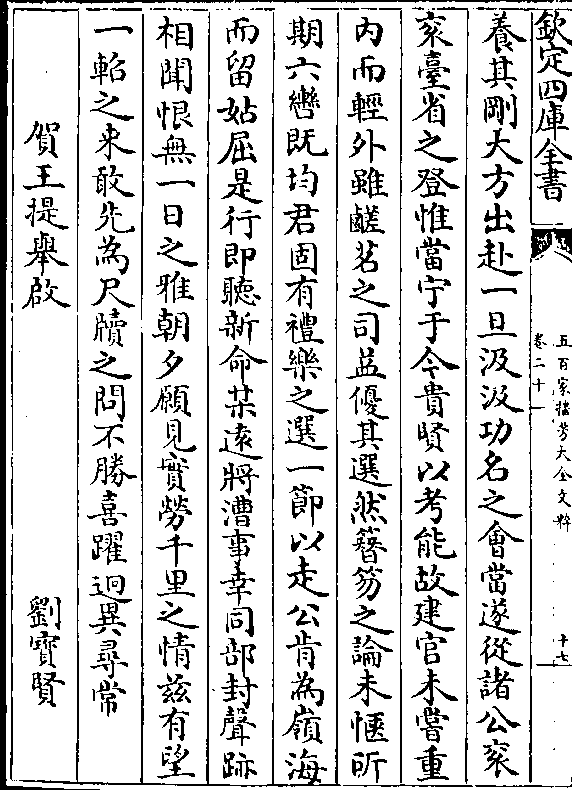 欽定四庫全書
五百家播芳大全文粹
卷二十一
十七
養其剛大方出赴一旦汲汲功名之會當遂從諸公衮
衮臺省之登惟當宁于今貴賢以考能故建官未嘗重
内而輕外雖鹺茗之司益優其選然簪笏之論未愜所
期六轡既均君固有禮樂之選一節以走公肯為嶺海
而留姑屈是行即聽新命某逺將漕事幸同部封聲跡
相聞恨無一日之雅朝夕願見實勞千里之情兹有望
一軺之来敢先為尺牘之問不勝喜躍迥異尋常
賀王提舉啟
劉寳賢